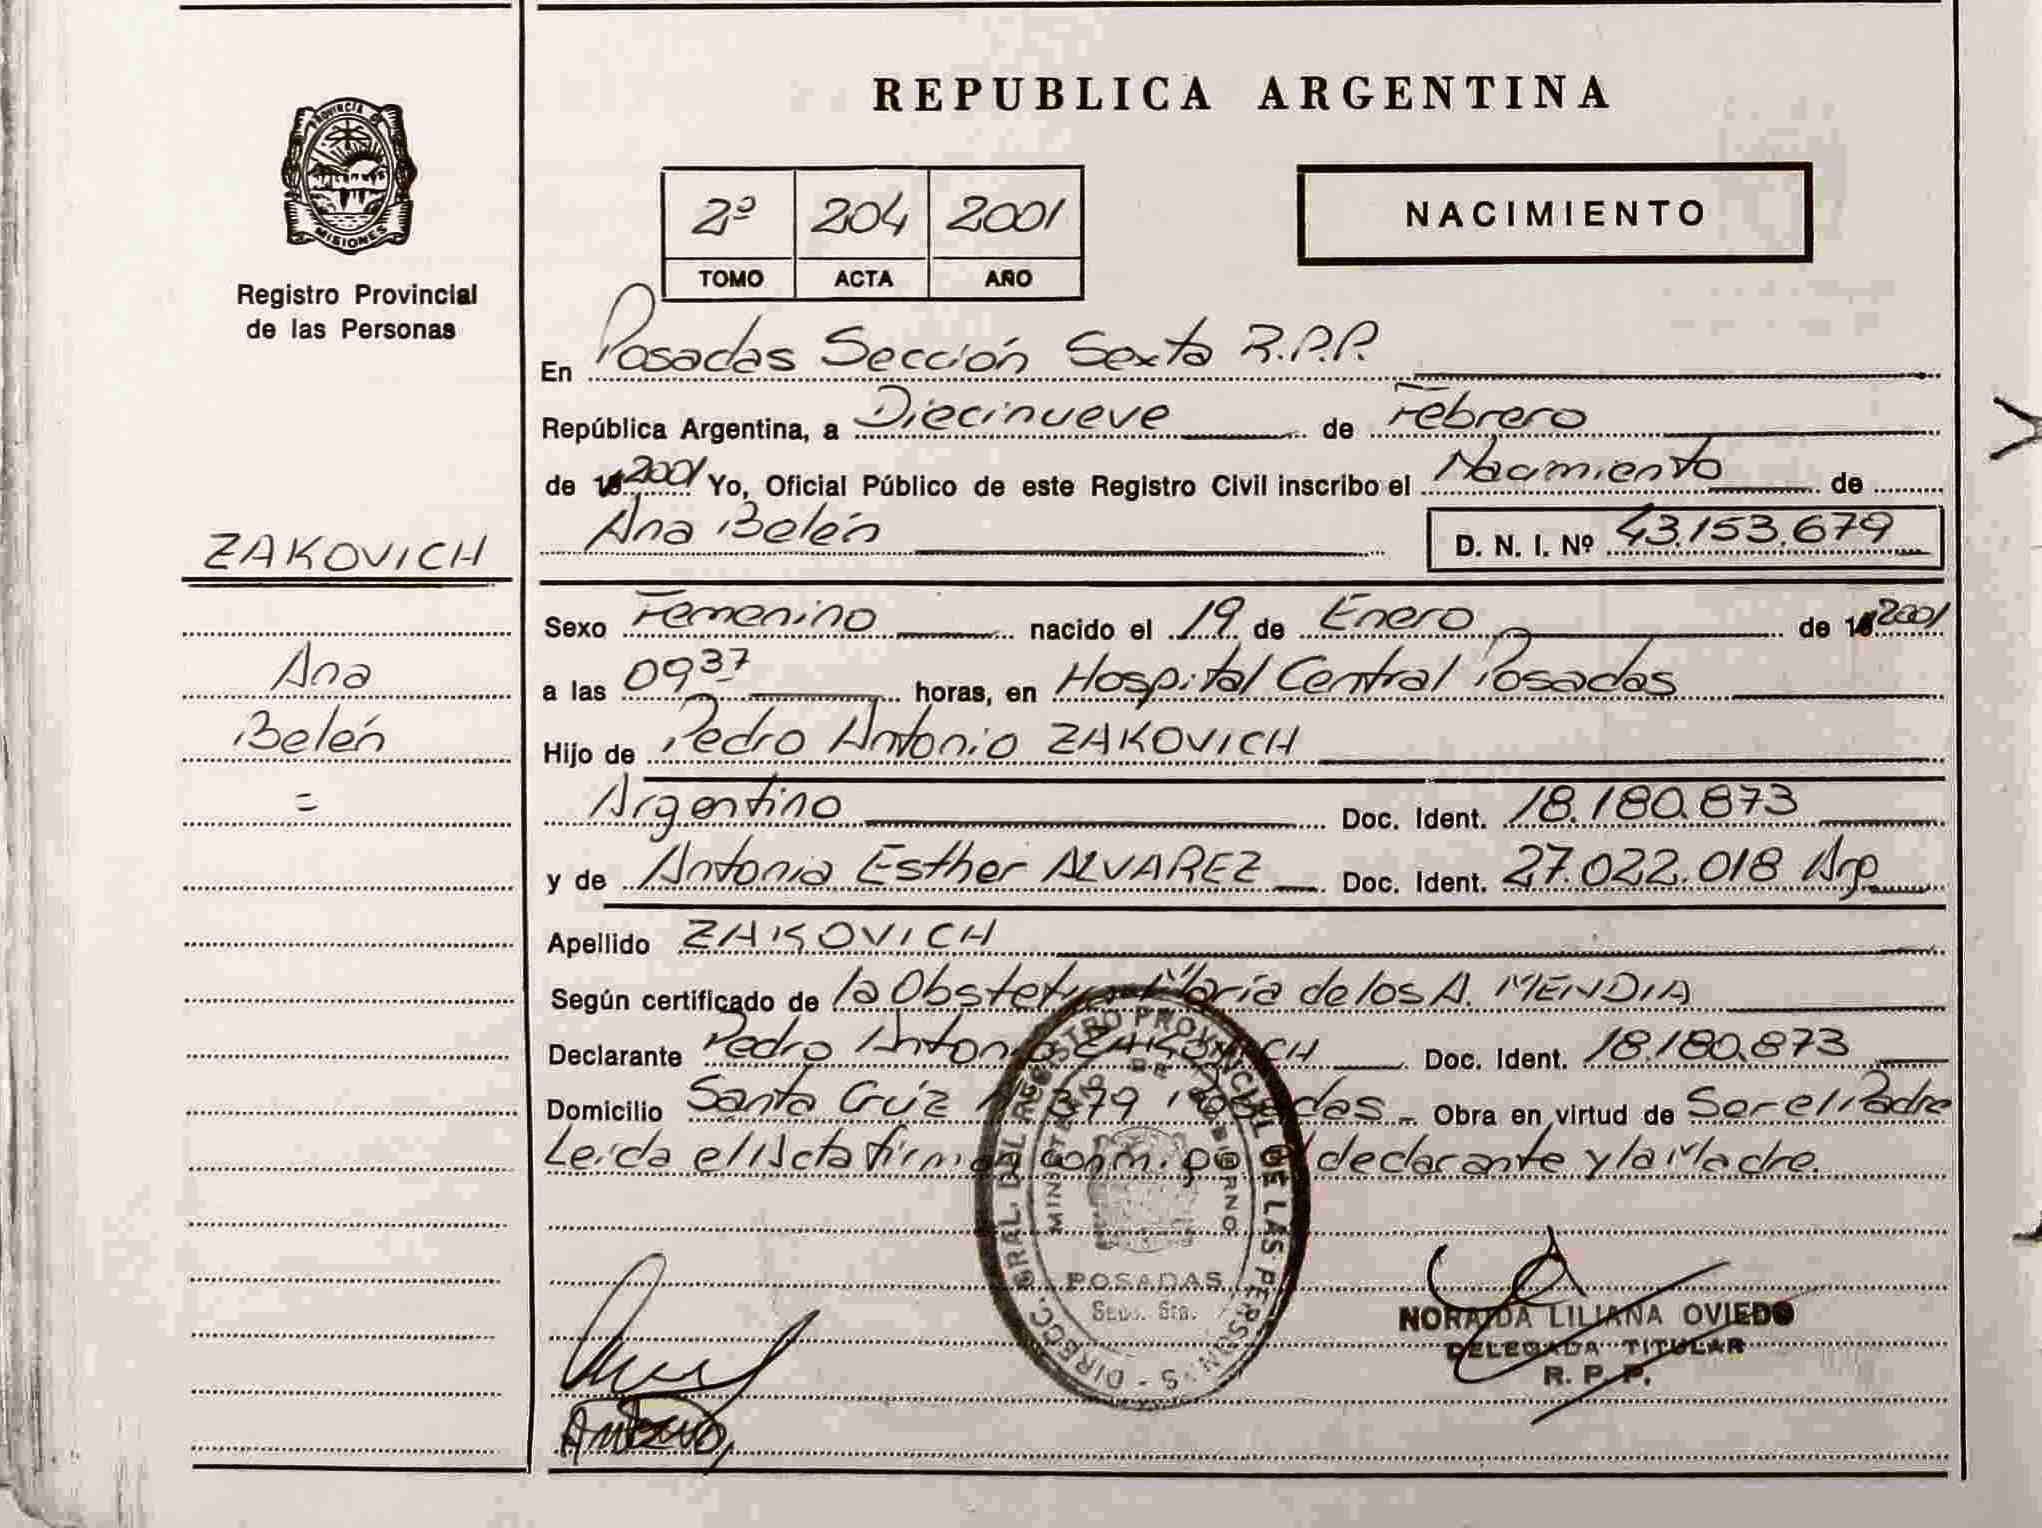 REPUBLICA ARGENTINA
PROVINCIA DE
MISIONES
Registro Provincial
de las Personas
2º 204 2001
TOMO ACTA AÑO
NACIMIENTO
En Posadas Sección Sexta R.P.P.
República Argentina, a Diecinueve de Febrero
de 2001 Yo, Oficial Público de este Registro Civil inscribo el Nacimiento de
Ana Belén D. N. I. Nº 43.153.679
ZAKOVICH
Ana
Belén
=
Sexo Femenino nacido el 19 de Enero de 2001
a las 09 37 horas, en Hospital Central Posadas
Hijo de Pedro Antonio ZAKOVICH
Argentino Doc. Ident. 18.180.873
y de Antonia Esther ALVAREZ Doc. Ident. 27.022.018 Arg
Apellido ZAKOVICH
Según certificado de la Obstetra María de los A. MENDIA
Declarante Pedro Antonio ZAKOVICH Doc. Ident. 18.180.873
Domicilio Santa Crúz 379 Posadas - Obra en virtud de Ser el Padre
Leída el Acta firman conmigo el declarante y la Madre.
DIRECC. GRAL. DEL REGISTRO PROVINCIAL DE LAS PERSONAS -
MINISTERIO DE GOBIERNO
POSADAS
Secc. 6ta.
NORAIDA LILIANA OVIEDO
DELEGADA TITULAR
R. P. P.